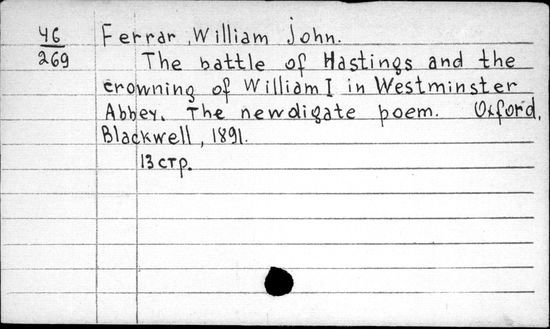 46 Ferrar, William John.
269 The battle of Hastings and the
crowning of William I in Westminster
Abbey. The newdigate poem. Oxford,
Blackwell, 1891.
13 стр.